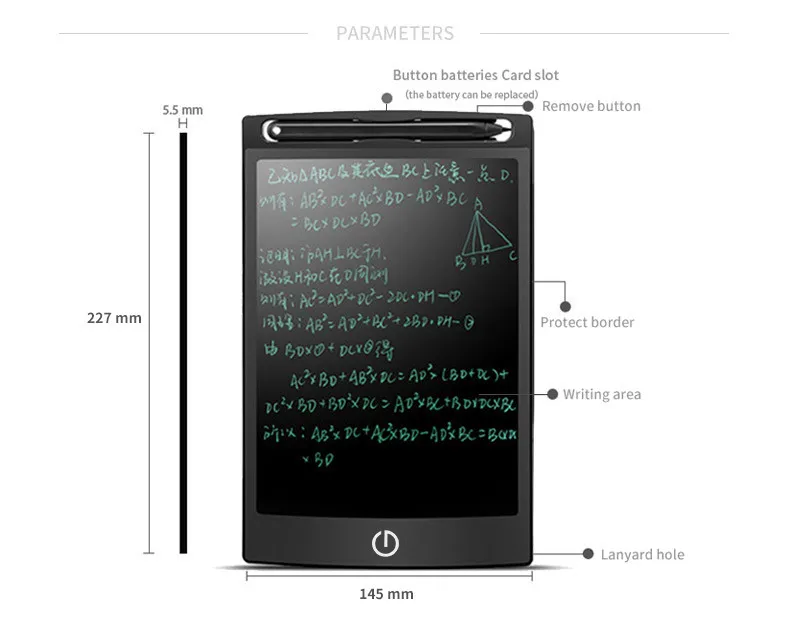 PARAMETERS
Button batteries Card slot
(the battery can be replaced)
Remove button
5.5 mm
已知△ABC及其底边BC上任意一点D.
则有：AB²×DC+AC²×BD-AD²×BC
=BC×DC×BD
A
B D H C
证明：
AH⊥BC于H.
H和C在D同侧
则有：AC²=AD²+DC²-2DC·DH-①
AB²=AD²+BC²+2BD·DH-②
由BD×①+DC×②得
AC²×BD+AB²×DC=AD²×(BD+DC)+
DC²×BD+BD²×DC=AD²×BC+BD×DC×BC
所以：AB²×DC+AC²×BD-AD²×BC=BC
×BD
227 mm
Protect border
Writing area
Lanyard hole
145 mm